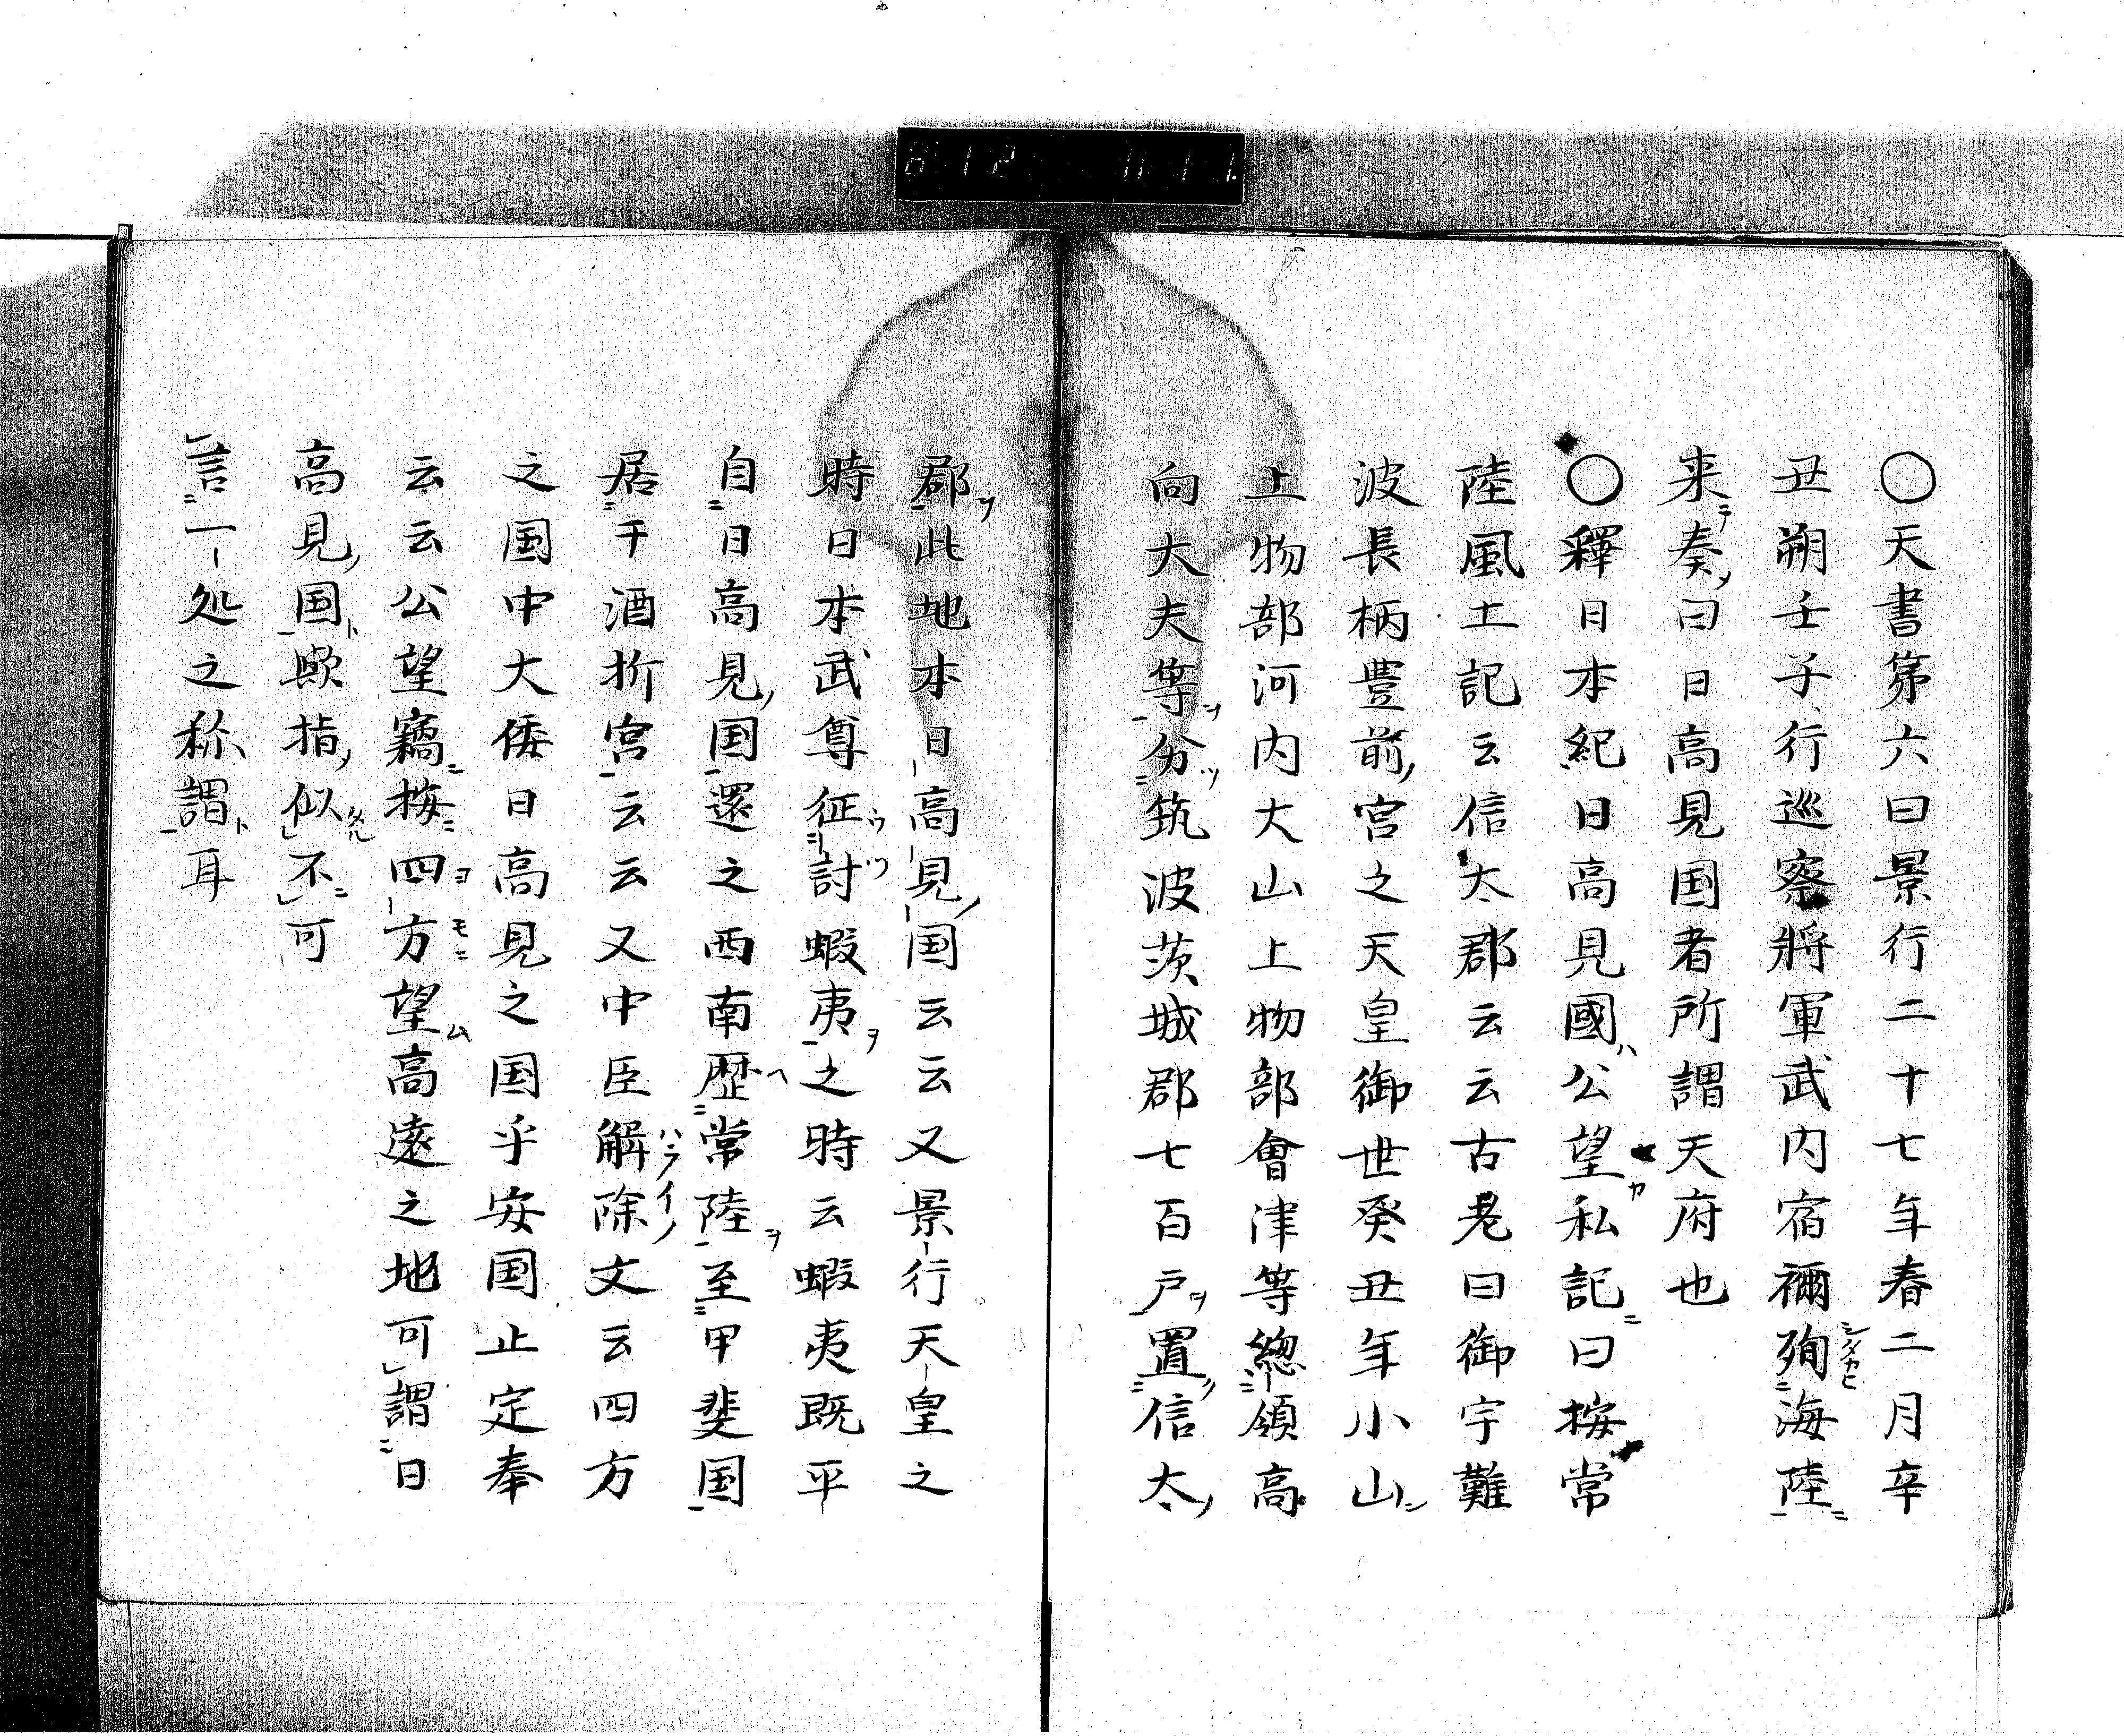 〇天書第六曰景行二十七年春二月辛
丑朔壬子行巡察将軍武内宿禰殉海陸
来奏曰日高見国者所謂天府也
〇釋日本紀日高見國公望私記曰按常
陸風土記云信太郡云云古老曰御宇難
波長柄豊前宮之天皇御世癸丑年小山
上物部河内大山上物部會津等總領高
向大夫等分筑波茨城郡七百戸置信太
郡此地本日高見国云云又景行天皇之
時日本武尊征討蝦夷之時云蝦夷既平
自日高見国還之西南歴常陸至甲斐国
居于酒折宮云云又中臣解除文云四方
之国中大倭日高見之国乎安国止定奉
云云公望竊按四方望高遠之地可謂日
高見国歟指似不可
言一処之称謂耳
6 12 11 1 1.